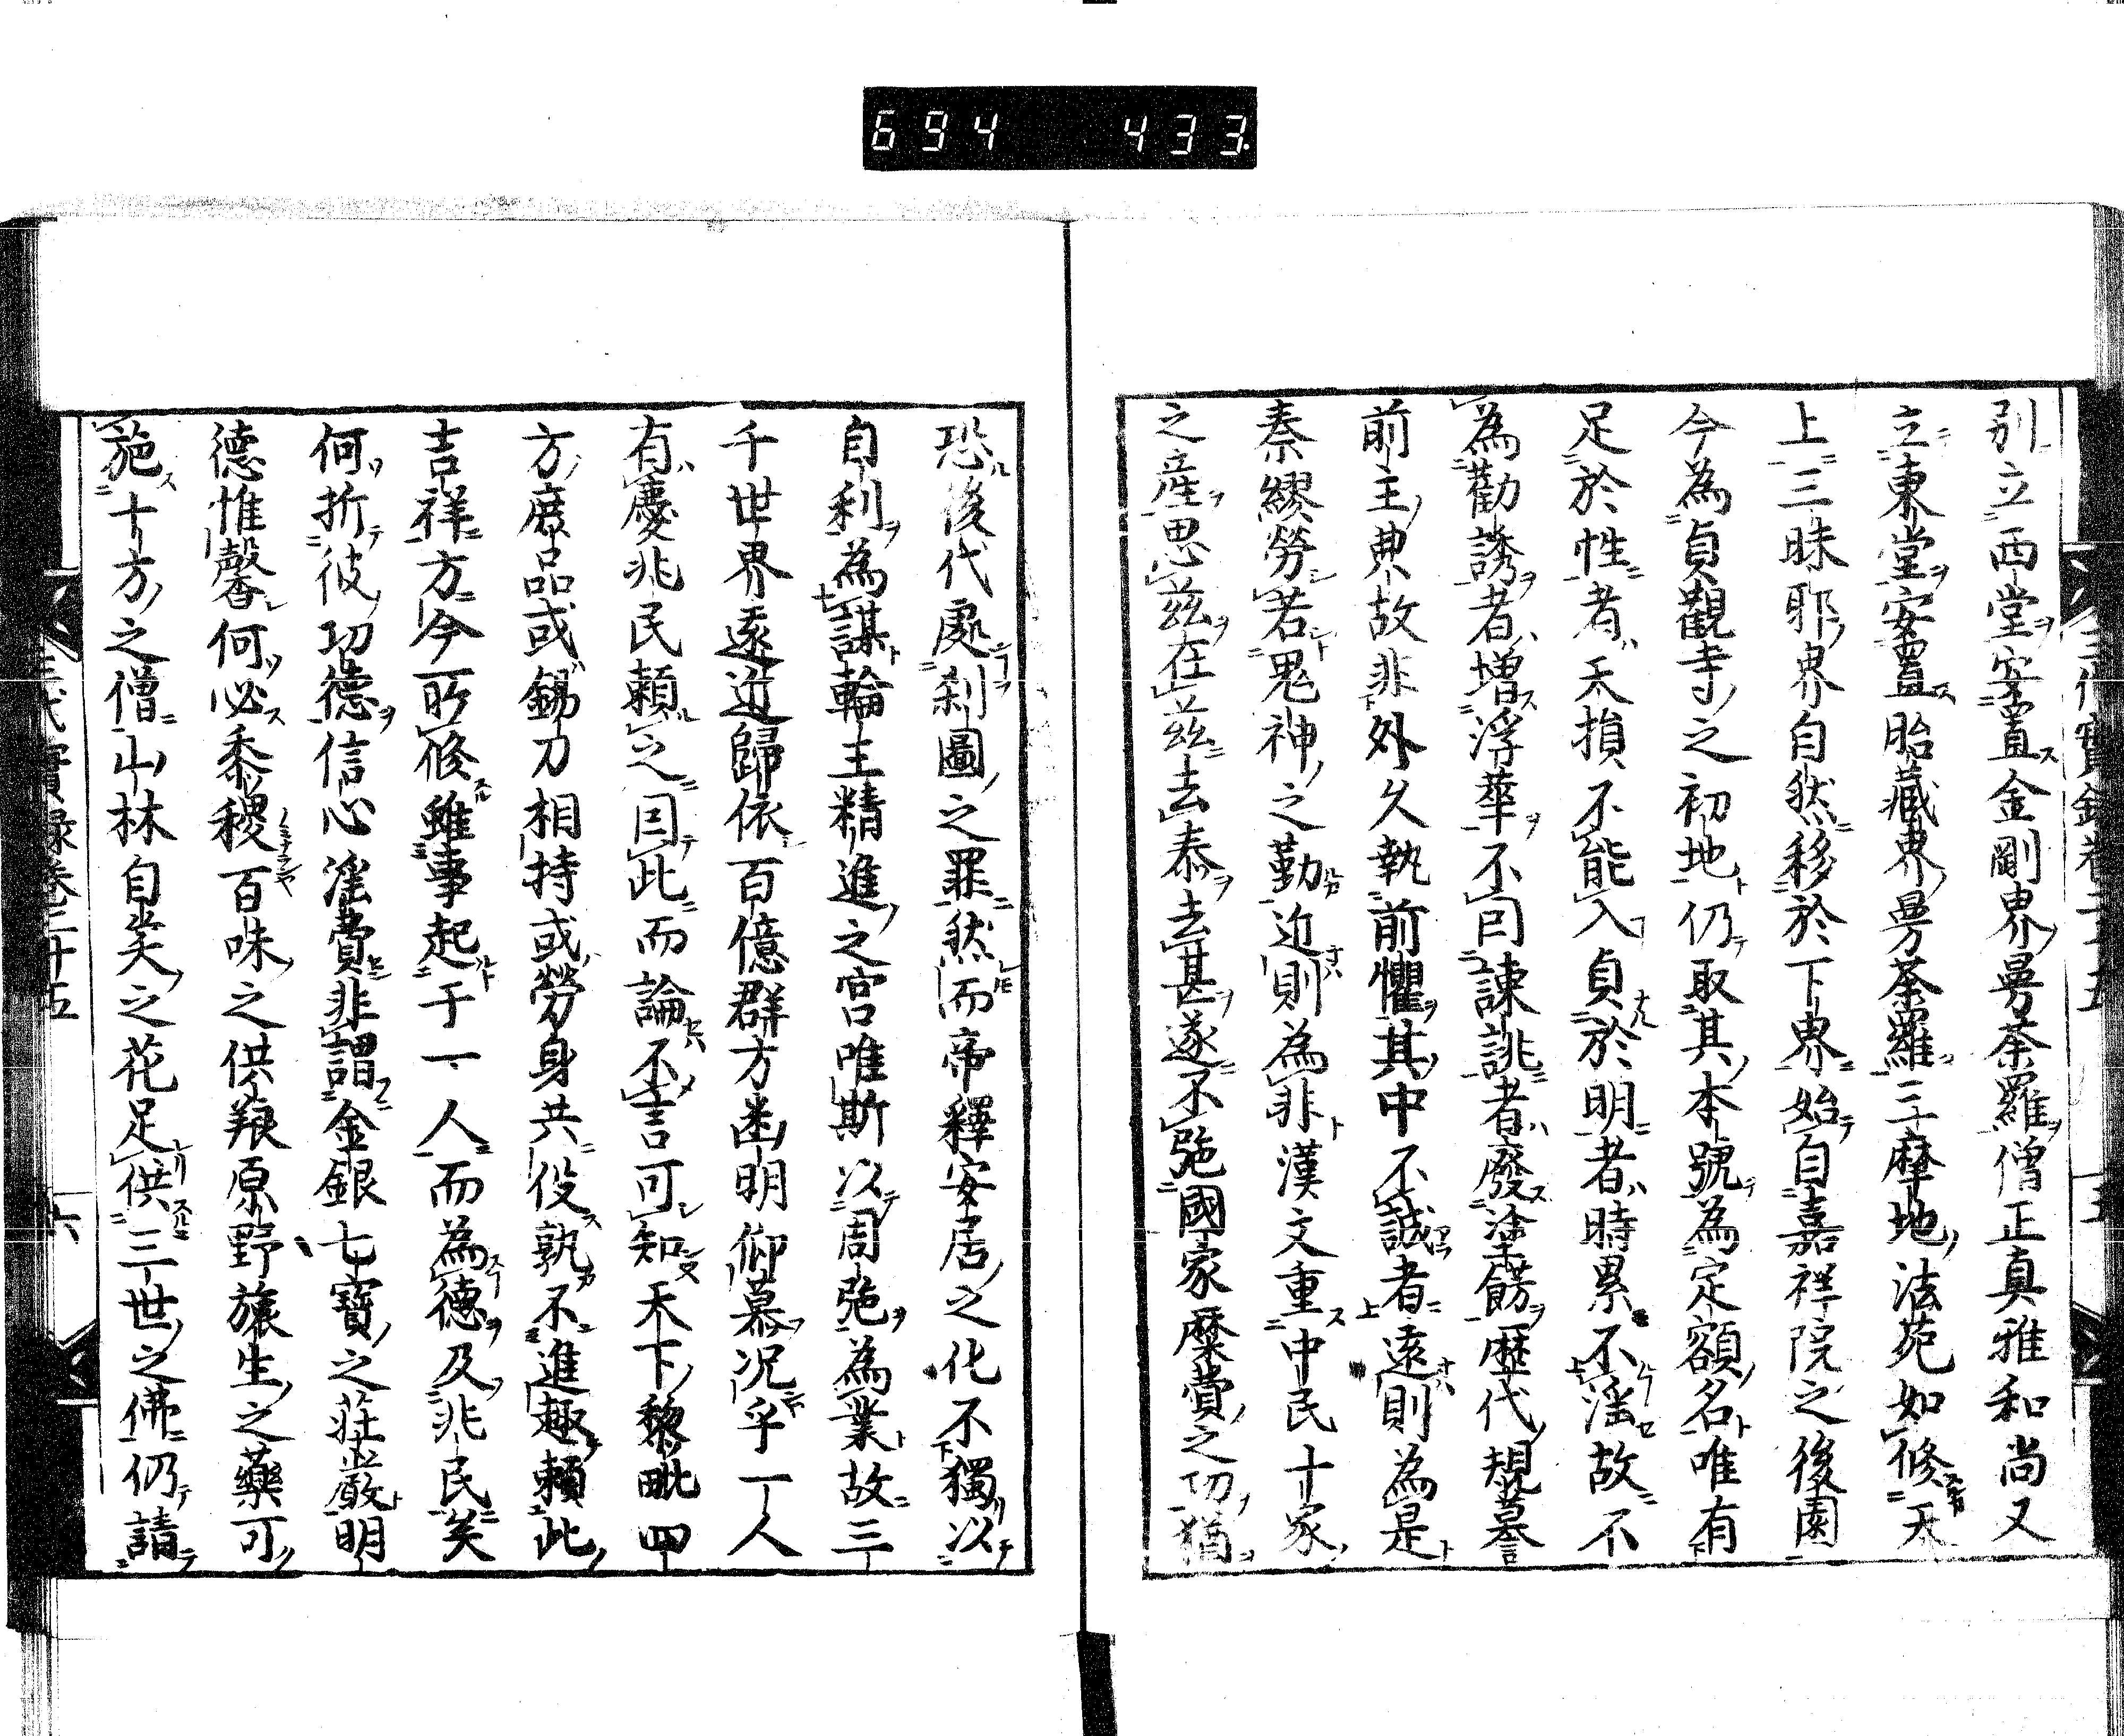 694 433
別立西堂安置金剛界曼荼羅僧正真雅和尚又
立東堂安置胎藏界曼荼羅三摩地法苑如修天
上三昧耶界自然移於下界始自嘉祥院之後園
今為貞觀寺之初地仍取其本號為定額名唯有
足於性者天損不能入貞於明者時累不滛故不
為勸誘者增浮華不囙諫誂者廢塗餝歷代規摹
前主典故非外久執前懼其中不誠者遠則為是
秦繆勞若鬼神之勤近則為非漢文重中民十家
之產思兹在兹去泰去甚遂不弛國家糜費之功猶
恐後代處刹圖之罪然而帝釋安居之化不獨以
自利為謀輪王精進之宮唯斯以周施為業故三
千世界遠近歸依百億群方幽明仰慕况乎一人
有慶兆民賴之囙此而論不言可知天下黎甿四
方庶品或錫刀相持或勞身共役孰不進趣賴此
吉祥方今所修雖事起于一人而為德及兆民矣
何折彼功德信心滛費非謂金銀七寶之莊嚴明
德惟馨何必黍稷百味之供羪原野旅生之藥可
施十方之僧山林自笑之花足供三世之佛仍請
三代實録卷二十五 六